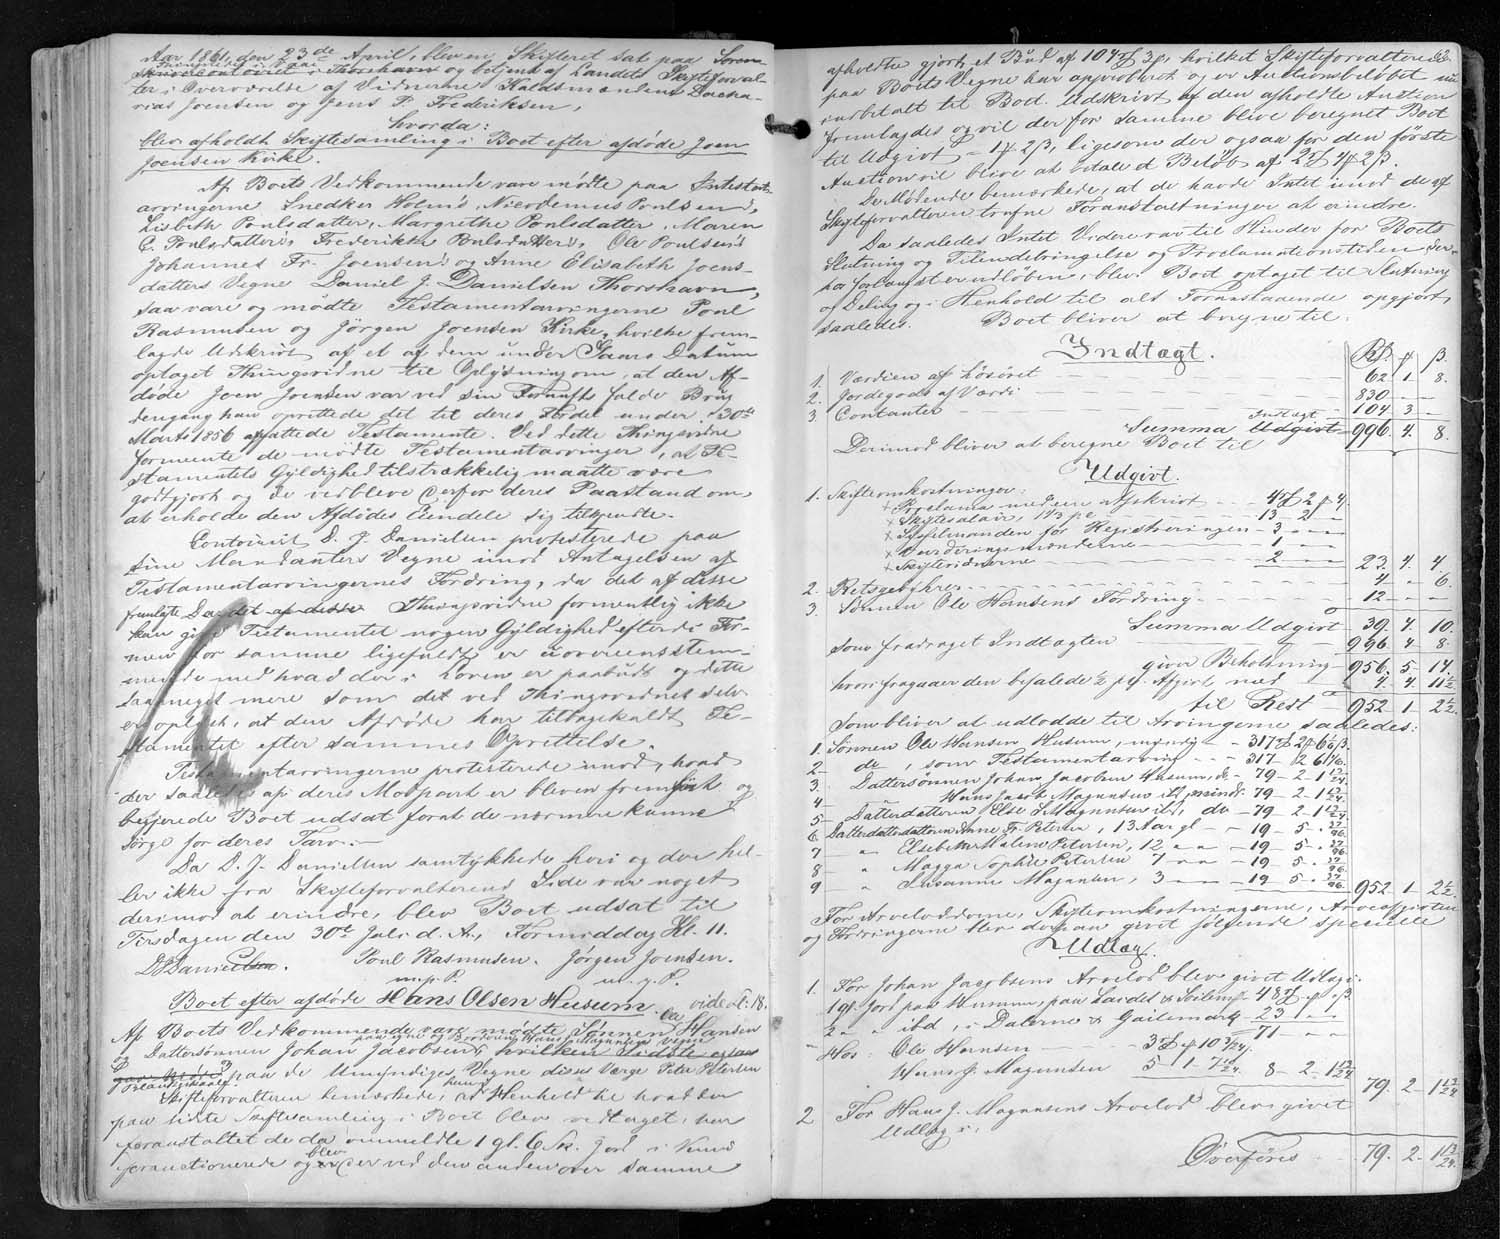 Aar 1861, den 23de April, blev en Skifteret sat paa Sorens-
kriverkontoiret i Thorshavn og betjent af Landets Skifteforval-
ter i Overværelse af Vidnerne Kaldsmændene Zacha-
rias Joensen og Jens P. Frederiksen,
hvorda:
blev afholdt Skiftesamling i Boet efter afdøde Joen
Joensen Kirke.
Af Boets Vedkommende vare mødte paa Intestat-
arvingerne Snedker Holms, Nicodemus Poulsens,
Lisbeth Poulsdatter, Margrethe Poulsdatter, Maren
C. Poulsdatters, Frederikke Poulsdatters, Ole Poulsens
Johannes Fr. Joensens og Anne Elisabeth Joens-
datters Vegne Daniel J. Danielsen Thorshavn,
saa vare og mødte Testamentarvingerne Poul
Rasmussen og Jørgen Joensen Kirke, hvilke frem-
lagde Udskrivt af et af dem under Gaars Datum
optaget Thingsvidne til Oplysning om, at den Af-
døde Joen Joensen var ved sin Fornufts fulde Brug
dengang han oprettede det til deres Fordel under 30te
Marts 1856 affattede Testamente. Ved dette Thingsvidne
formente de mødte Testamentarvinger, at Te-
stamentets Gyldighed tilstrækkelig maatte være
godtgjort og de vedbleve derfor deres Paastand om,
at erholde den Afdødes Eiendele sig tilkjendte.
Contoirist D. J. Danielsen protesterede paa
sine Mandanters Vegne imod Antagelsen af
Testamentarvingernes Fordring, da det af disse
fremlagte Da det af disse Thingsvidne formentlig ikke
kan give Testamentet nogen Gyldighed efterdi For-
men for samme ligefuldt er uovereensstem-
mende med hvad der i Loven er paabudt og dette
saameget mere som det ved Thingsvidnet selv
er oplyst, at den Afdøde har tilbagekaldt Te-
stamentet efter sammes Oprettelse.
Testamentarvingerne protesterede imod, hvad
der saaledes af deres Modpart er bleven fremført og
begjerede Boet udsat forat de nærmere kunne
sørge for deres Tarv.
Da D. J. Danielsen samtykkede heri og der hel-
ler ikke fra Skifteforvalterens Side var noget
derimod at erindre, blev Boet udsat til
Tirsdagen den 30te Juli d. A., Formiddag Kl. 11.
DJDanielsen. Poul Rasmusen. Jørgen Joensen.
m. p. P. m. p. P.
Boet efter afdøde Hans Olsen Husum. vide ol: 18.
Af Boets Vedkommende vare mødte Sønnen Ole Hansen
paa egne og Broderen Hans J. Magnussens Vegne
og Dattersønnen Johan Jacobsen, hvilken Sidste ogsaa
paa de Umyndiges Vegne disses Verge Peter Petersen
Skifteforvalteren bemærkede, at i Henhold til hvad der
paa sidste Skiftesamling i Boet blev vedtaget, var
foranstaltet de da ommeldte 1 gl. 6 Sk. Jord i
forauctionerede og blev der ved den anden over samme
62
afholdte gjort et Bud af 104 Rd 3 ß, hvilket Skifteforvalteren
paa Boets Vegne har approberet og er Auctionsbeløbet nu
indbetalt til Boet. Udskrivt af den afholdte Auction
fremlagdes og vil der for samme blive beregnet Boet
til Udgivt - 1 # 2 ß, ligesom der ogsaa for den første
Auction vil blive at betale et Beløb af 2 Rd 4 # 2 ß.
De Mødende bemærkede, at de havde Intet imod de af
Skifteforvalteren trufne Foranstaltninger at erindre.
Da saaledes Intet Videre var til Hinder for Boets
Slutning og Tilendebringelse og Proclamationstiden der-
for forlængst er udløben, blev Boet optaget til Slutning
af Deling og i Henhold til alt Foranstaaende opgjort
saaledes. Boet bliver at beregne til.
Indtægt. Rd. # ß.
1. Værdien af Løsøret 62 1 8.
2. Jordegods af Værdi 830 - -
3. Contanter 104 3 -
Summa Udgivt Indtægt 996. 4. 8.
Derimod bliver at beregne Boet til
Udgivt.
1. Skifteomkostninger:
x Proclama med een Afskrivt - - 4 Rd 2 # 4.
x Skiftesalair, 1 1/3 pC 13 2 -
x Sysselmanden for Registreringen - 3 - -
x Vurderingsmændene 1 - -
x Skiftevidnerne 2 - - 23. 4. 4
2. Retsgebyhrer 4 - 6.
3. Sønnen Ole Hansens Fordring 12 - -
Summa Udgivt 39. 4. 10.
Som fradraget Indtægten 996 4 8.
giver Beholdning 956. 5 - 14.
hvori fragaaer den befalede ½ pC Afgivt med 4. 4. 11½
til Rest 952 1 2½.
Som bliver at udlodde til Arvingerne saaledes:
1. Sønnen Ole Hansen Husum, myndig - - 317 Rd 2 # 6 1/6 ß.
2 - do, som Testamentarving - - 317 - 2 6 1/6.
3. Dattersønnen Johan Jacobsen Husum, do - 79 - 2 - 1 13/24.
4 - Hans Jacob Magnussen ibd, mindr. 79 - 2 - 1 13/24
5 - Datterdatteren Else S Magnussen ibd, do - 79 - 2 - 1 13/24
6. Datterdatterdatteren Anne Fr. Petersen, 13 Aar gl - - 19 - 5 . 37/96.
7 - " Elsebeth Malene Petersen, 12 " " - 19 - 5. 37/96.
8 - " Magga Sophie Petersen 7 " " - 19 - 5. 37/96.
9 " Susanne Magnussen, 3 - 19 5. 37/96. 952. 1 - 2½.
For Arvelodderne, Skifteomkostningerne, Arveafgivten
og Fordringerne blev derpaa givet følgende specielle
Udlæg.
1. For Johan Jacobsens Arvelod blev givet Udlæg:
1 gl. Jord paa Husum, paa Landet & 48 Rd # ß.
2 - " ibd, i Dalerne & 23 1 "
71 - -
Hos: Ole Hansen 3 Rd # 10 3/24.
Hans J. Magnussen 5 1 7 8 - 2 - 1 13/24
79. 2 - 1 13/24
2 For Hans J. Magnussens Arvelod blev givet
Udlæg i:
Overføres 79. 2 - 1 13/24.